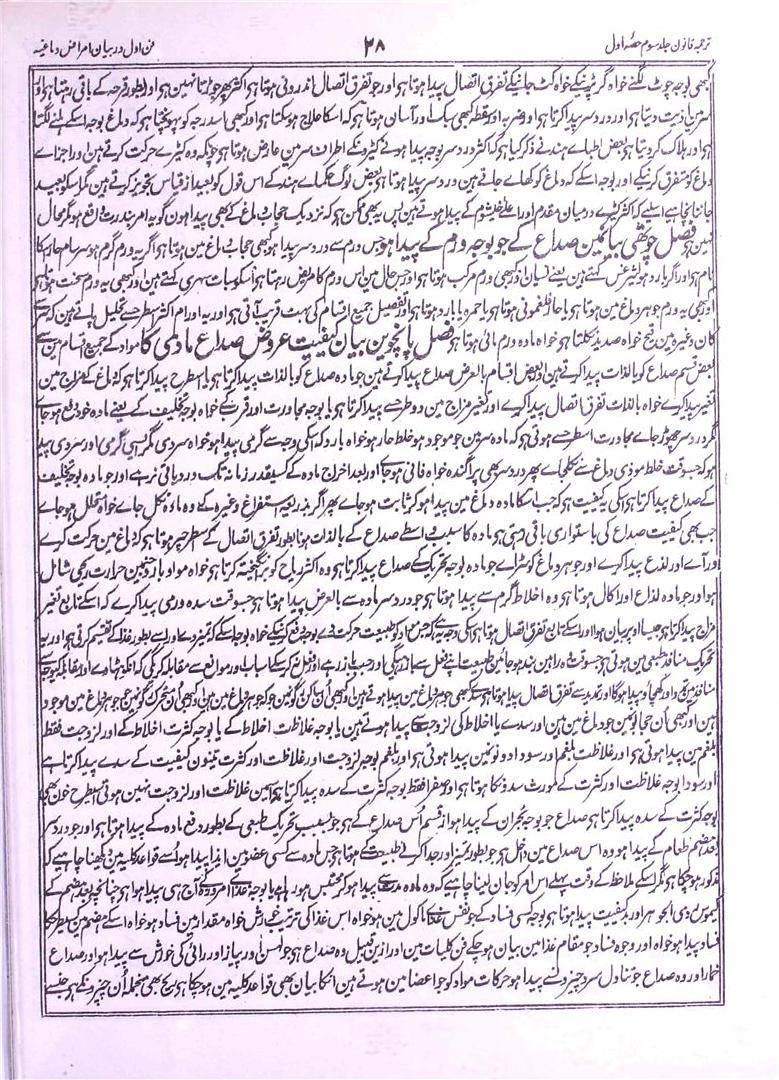 ترجمہ قانون جلد سوم حصہ اول
۲۸
فن اول در بیان امراض دماغیہ
کبھی بوجہ چوٹ لگنے خواہ گر پڑنیکے خواہ کٹ جانیکے تفرق اتصال پیدا ہوتا ہی اور جو تفرق اتصال اندرونی ہوتا ہی اکثر پھر جوڑتا نہین ہی اور بطور قرحہ کے باقی رہتا ہی اور
سر مین اذیت دیتا ہی اور درد سر پیدا کرتا ہی اور ضربہ اور سقطہ کبھی سبک اور آسان ہوتا ہی کہ اسکا علاج ہو سکتا ہی اور کبھی اس درجہ کو پہونچتا ہی کہ دماغ بوجہ اسکے ہلنے لگتا
ہی اور ہلاک کر دیتا ہی بعض اطباے ہند نے ذکر کیا ہی کہ اکثر درد سر بوجہ پیدا ہونے کیڑونکے اطراف سر مین عارض ہوتا ہی چونکہ وہ کیڑے حرکت کرتے ہین اور اجزاے
دماغ کو متفرق کرنیکے اور بوجہ اسکے کہ دماغ کو کھاے جاتے ہین درد سر پیدا ہوتا ہی بعض لوگ حکماے ہند کے اس قول کو بعید از قیاس تجویز کرتے ہین مگر اسکو بعید
جاننا نچاہیے اسلیے کہ اکثر کیڑے درمیان مقدم اور اعلی خیشوم کے پیدا ہوتے ہین پس یہ بھی ممکن ہی کہ نزدیک حجاب دماغ کے بھی پیدا ہون گو یہ امر بندرت واقع ہو مگر محال
نہین ہی فصل چوتھی بیانمین صداع کے جو بوجہ ورم کے پیدا ہو جس ورم سے درد سر پیدا ہو کبھی حجاب دماغ مین ہوتا ہی اگر یہ ورم گرم ہو سرسام حار اسکا
نام ہی اور اگر بارد ہو لیثرغس کہتے ہین یعنے نسیان اور کبھی ورم مرکب ہوتا ہی اور جس حال مین اس ورم کا مریض رہتا ہی اسکو سبات سہری کہتے ہین اور کبھی یہ ورم سخت ہوتا ہی
اور کبھی یہ ورم جوہر دماغ مین ہوتا ہی یا حار فلغمونی ہوتا ہی یا حمرہ یا بارد ہوتا ہی اور تفصیل جمیع اقسام کی بہت قریب آتی ہی اور یہ اورام اکثر سطرح سے تحلیل پاتے ہین کہ
کان وغیرہ مین قیح خواہ صدید نکلتا ہی خواہ مادہ ورم مائی ہوتا ہی فصل پانچوین بیان کیفیت عروض صداع مادی کا مواد کے جمیع اقسام مین سے
بعض قسم صداع کو بالذات پیدا کرتے ہین اور بعض اقسام بالعرض صداع پیدا کرتے ہین جو مادہ صداع کو بالذات پیدا کرتا ہی یا اسطرح پیدا کرتا ہی کہ دماغ کے مزاج مین
تغیر پیدا کرے خواہ بالذات تفرق اتصال پیدا کرے اور تغیر مزاج مین دو طرح سے پیدا کرتا ہی یا بوجہ مجاورت اور قرب کے خواہ بوجہ تخلیف کے یعنے مادہ خود دفع ہو جاے
مگر درد سر چھوڑ جاے مجاورت اسطرح سے ہوتی ہی کہ مادہ سر مین جو موجود ہو خلط حار ہو خواہ بارد کہ اسکی وجہ سے گرمی پیدا ہو خواہ سردی مگر ایسی گرمی اور سردی پیدا
ہو کہ جسوقت خلط موذی دماغ سے نکلجاے پھر درد سر بھی پراگندہ خواہ فانی ہو جاے اور بعد اخراج مادہ کے کسیقدر زمانہ تک درد باقی نرہے اور جو مادہ بوجہ تخلیف
کے صداع پیدا کرتا ہی اسکی کیفیت ہی کہ جب اسکا مادہ دماغ مین پیدا ہو کر ثابت ہو جاے پھر اگر بذریعہ استفراغ وغیرہ کے وہ مادہ نکل جاے خواہ متحلل ہو جاے
جب بھی کیفیت صداع کی باستواری باقی رہتی ہی مادہ کا سبب واسطے صداع کے بالذات ہونا بطور تفرق اتصال کے اسطرح پر ہوتا ہی کہ دماغ مین حرکت کرے
اور آے اور لذع پیدا کرے اور جوہر دماغ کو سڑاے جو مادہ بوجہ تحریک کے صداع پیدا کرتا ہی وہ اکثر ریاح کو برانگیختہ کرتا ہی خواہ مواد بارد جنمین حرارت بھی شامل
ہو اور جو مادہ لذاع اور اکال ہوتا ہی وہ اخلاط گرم سے پیدا ہوتا ہی جو درد سر مادہ سے بالعرض پیدا ہوتا ہی جسوقت سدہ ورمی پیدا کرے کہ اسکے تابع تغیر
مزاج پیدا کرتا ہی جیسا اوپر بیان ہوا اور اسکے تابع تفرق اتصال ہوتا ہی اسکی وجہ یہ ہی کہ جس مواد کو طبیعت حرکت دے بوجہ دفع کرنیکے خواہ بوجہ اسکے کہ تمیز دے اور اسے بطور غذا کے تقسیم کرتی ہو اور یہ
تحریک منافذ طبعی مین ہوتی ہی جسوقت وہ راہین بند ہو جائین طبیعت اپنے فعل سے باز رہیگی اور
منافذ مین تمدد اور کھچاؤ پیدا ہوگا اور تمدید سے تفرق اتصال پیدا ہوتا ہی سدے کبھی جوہر دماغ مین پیدا ہوتے ہین اور کبھی ان ساکن رگونمین جو کہ جوہر دماغ مین ہین اور کبھی ان متحرک رگونمین جو جوہر دماغ مین موجود
ہین اور کبھی ان حجابونمین جو دماغ مین ہین اور سدے یا اخلاط کی لزوجت سے پیدا ہوتے ہین یا بوجہ غلاظت اخلاط کے یا بوجہ کثرت اخلاط کے اور لزوجت فقط
بلغم مین پیدا ہوتی ہی اور غلاظت بلغم اور سودا دونونمین پیدا ہوتی ہی اور بلغم بوجہ لزوجت اور غلاظت اور کثرت تینون کیفیت کے سدے پیدا کرتا ہے
اور سودا بوجہ غلاظت اور کثرت کے مورث سدونکا ہوتا ہی اور صفرا فقط بوجہ کثرت کے سدہ پیدا کرتا ہی اسمین غلاظت اور لزوجت نہین ہوتی اسیطرح خون بھی
بوجہ کثرت کے سدہ پیدا کرتا ہی صداع جو بوجہ بحران کے پیدا ہو از قسم اس صداع کے ہی جو بسبب تحریک طبعی کے بطور دفع مادہ کے پیدا ہوتا ہی اور جو درد سر
بعد ہضم طعام کے پیدا ہو وہ اس صداع مین داخل ہی جو بطور تمیز اور جدا کرنے طبیعت کے ہوتا ہی جس مادہ سے کسی عضو مین ایذا پیدا ہو اسے قواعد کلیہ مین دیکھنا چاہیے کہ
مذکور ہو چکا ہی مگر اسکے ملاحظہ کے وقت پہلے اس امر کو جان لینا چاہیے کہ وہ مادہ مدت سے پیدا ہو کر محتبس ہو رہا ہے یا بوجہ غذاے امروزہ کے آج ہی پیدا ہوا ہی چنانچہ بعد ہضم کے
کیموس ردی الجوہر اور بد کیفیت پیدا ہوتا ہی بوجہ کسی فساد کے جو نفس غذاے ماکول مین ہو خواہ اس غذا کی ترتیب خورش خواہ مقدار مین فساد ہو خواہ اسکے ہضم مین کسیطرحکا
فساد پیدا ہو خواہ اور وجوہ فساد جو مقام غذا مین بیان ہو چکے فن کلیات مین اور ازین قبیل وہ صداع ہی جو لہسن اور پیاز اور رائی کی خورش سے پیدا ہو اور صداع
خمار اور وہ صداع جو تناول سرد چیزونسے پیدا ہو حرکات مواد کو جو اعضا مین ہوتے ہین انکا بیان بھی قواعد کلیہ مین ہو چکا ہی ریح بھی منجملہ ان چیزونکے ہی جنسے